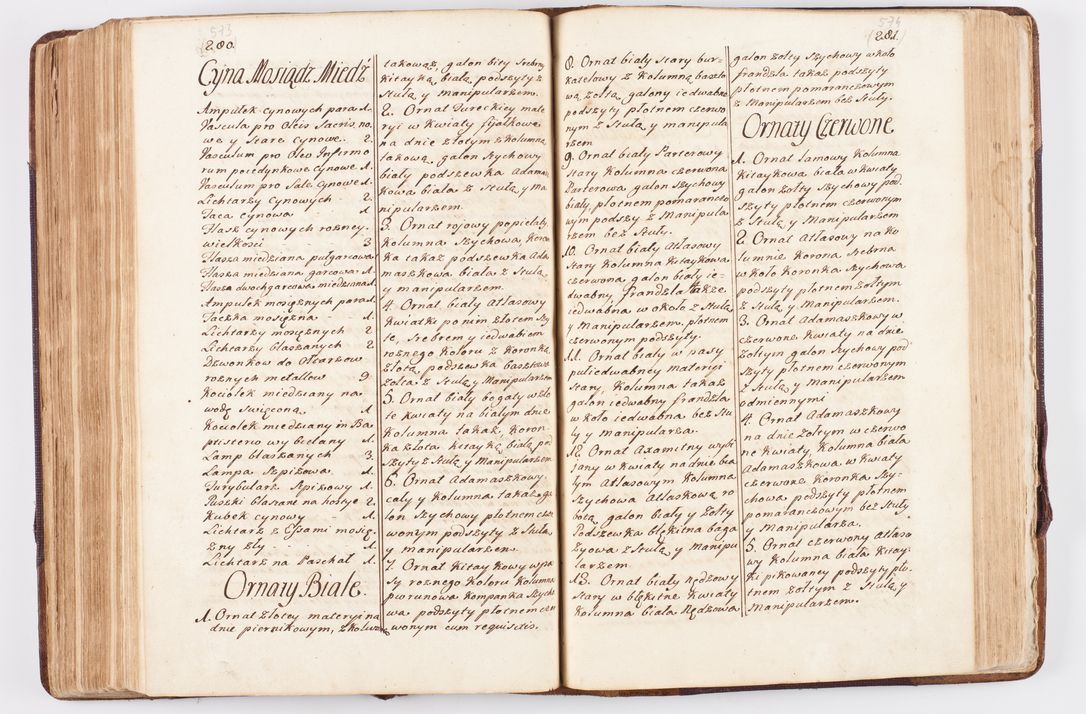 573
280.
Cyna Mosiądz Miedź
Ampułek cynowych para 1.
Vascula pro Oleis Sacris no.
we y stare cynowe. 2.
Vasculum pro Oleo Infirmo
rum poiedynkowe cynowe 1.
Vasculum pro Sale cynowe 1.
Lichtarzy Cynowych 2.
Taca cynowa 1.
Flasz cynowych rozney.
wielkości 3
Flasza miedziana pułgarcowa
Flasza miedziana garcowa 1.
Flasza dwochgarcowa miedziana 1
Ampułek mosięznych para 1.
Taczka mosięzna 1.
Lichtarzy mosięznych 2
Lichtarzy blaszanych 2
Dzwonkow do Ołtarzow
roznych metallow 9
Kociołek miedziany na
wodę swięconą 1
Kociołek miedziany in Ba
ptisterio wybielany 1.
Lamp blaszanych 3.
Lampa Szpizowa 1.
Turybularz Spizowy 1.
Puszki blaszane na hostye 2.
Kubek cynowy 1.
Lichtarz z Essami mosię
zny zły 1.
Lichtarz na Paschał 1.
Ornaty Białe.
1. Ornat złotey materyi na
dnie piernikowym, z kolumną
takowąż, galon bity srebrny
kitayką białą podszyty z
stułą y manipularzem.
2. Ornat Tureckiey mate
ryi w kwiaty fijałkowe
na dnie złotym z kolumną
takową, galon szychowy
biały podszewka Adamasz
kowa biała z stułą y ma
nipularzem.
3. Ornat rysowy popielaty
kolumna szychowa koron
ka takaż podszewka Ada
maszkowa biała z stułą
y manipularzem.
4. Ornat biały atłasowy
kwiatki po nim złotem szy
te, srebrem y iedwabiem
roznego koloru z koronką
złotą podszewka basztowa
zółta z stułą y Manipularzem
5. Ornat biały bogaty w zło
te kwiaty na białym dnie
kolumna takaż, koron-
ka złota kitayką białą pod
szyty z stułą y Manipularzem
6. Ornat Adamaszkowy.
cały y kolumna takaż ga
lon szychowy płotnem czer
wonym podszyty z stułą
y manipularzem.
7. Ornat kitaykowy w pa
sy roznego koloru kolumna
piorunowa kompanka szycho
wa, podszyty płotnem czer
wonym cum requisitis.
574
281.
8. Ornat biały stary bur-
katelowy z kolumną baszto
wą zółtą galony iedwabne
podszyty płotnem czerwo
nym z stułą y manipula
rzem
9. Ornat biały Parterowy
stary kolumna czerwona
Parterowa galon szychowy
biały, płotnem pomaranczo
wym podszy z Manipula
rzem bez stuły.
10. Ornat biały Atłasowy
stary kolumna kitaykowa
czerwona galon biały ie-
dwabny frandzla także
iedwabna w około z stułą
y Manipularzem, płotnem
czerwonym podszyty.
11. Ornat biały w pasy
puliedwabney materyi
stary, kolumna takaż
galon iedwabny frandzla
w koło iedwabna bez stu
ły y manipularza.
12. Ornat Axamitny wybi
iany w kwiaty na dnie bia
łym Atłasowym kolumna
szychowa Atłaskową ro
botą galon biały y zółty
Podszewka błękitna baga
zyowa z stułą y Manipu
larzem
13. Ornat biały nędzowy
stary w błękitne kwiaty
kolumna biała nędzowa
galon zółty szychowy w koło
frandzla takaż podszyty
płotnem pomaranczowym
z Manipularzem bez stuły.
Ornaty Czerwone
1. Ornat lamowy kolumna
kitaykowa biała w kwiaty
galon zółty szychowy pod.
szyty płotnem czerwonym
z stułą y Manipularzem
2. Ornat Atłasowy na ko
lumnie korona srebrna
w koło koronka szychowa
podszyty płotnem zółtym
z stułą y Manipularzem.
3. Ornat Adamaszkowy w
czerwone kwiaty na dnie
zółtym galon szychowy pod
szyty płotnem czerwonym
z stułą y Manipularzem
odmiennymi
4. Ornat Adamaszkowy
na dnie zółtym w czerwo
ne kwiaty, kolumna biała
Adamaszkowa w kwiaty
czerwone koronka szy-
chowa podszyty płotnem
pomaranczowym bez stuły
y Manipularza.
5. Ornat czerwony Atłaso
wy kolumna biała kitay.
ki pikowaney podszyty pło-
tnem zółtym z stułą y
Manipularzem.